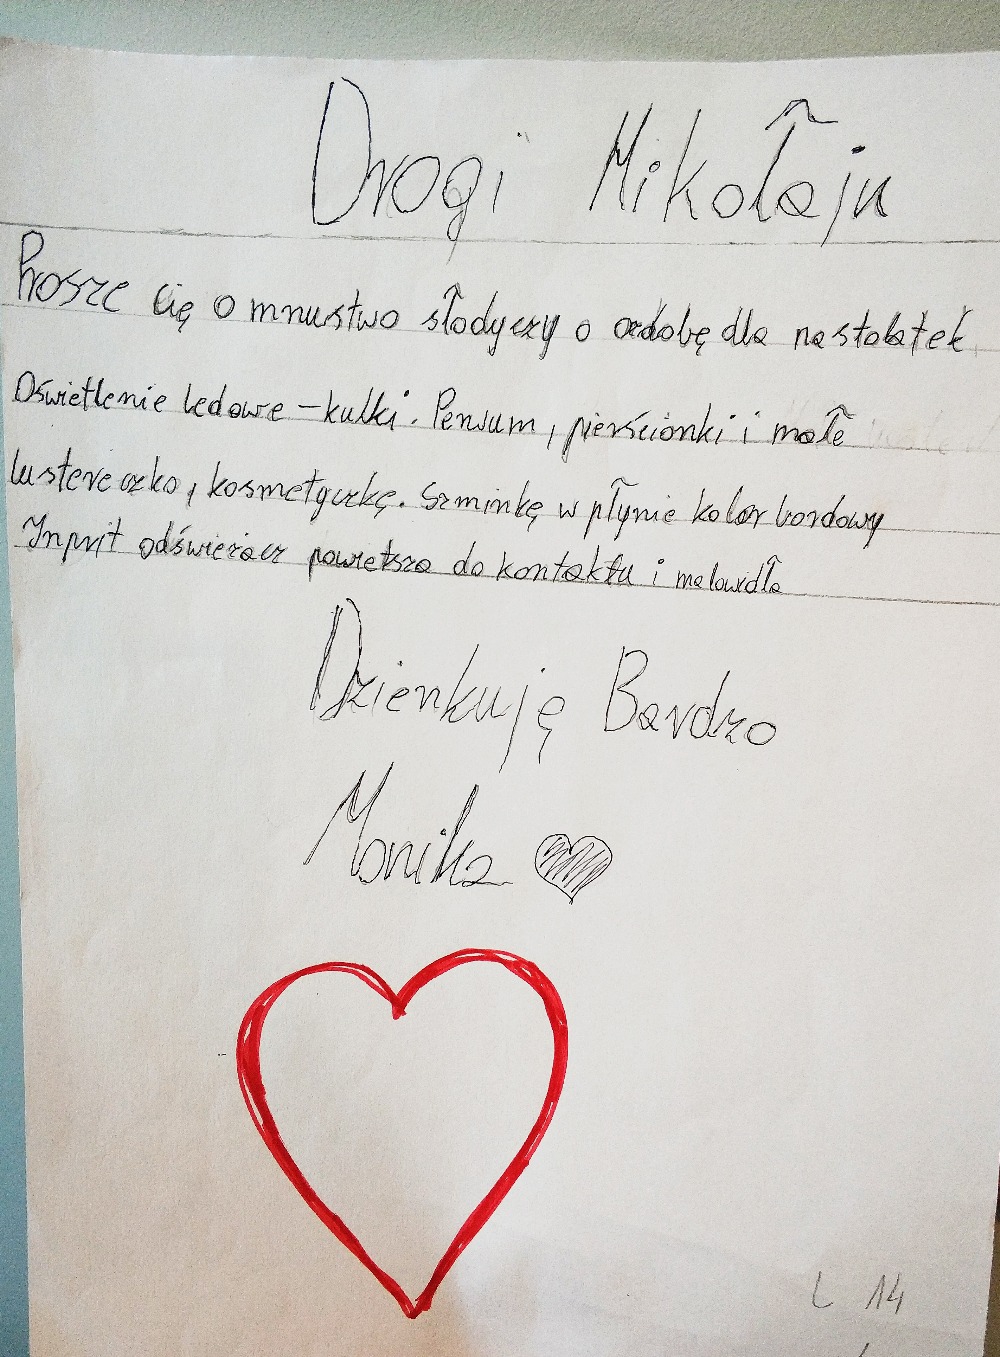 Drogi Mikołaju
Prosze cię o mnustwo słodyczy o ozdobę dla nastolatek
Oświetlenie ledowe – kulki. Perwum, pierścionki i małe
lustereczko, kosmetyczkę. Szminkę w płynie kolor bordowy
Inprit odświerzacz powietsza do kontaktu i malowidła
Dzienkuję Bardzo
Monika
L 14